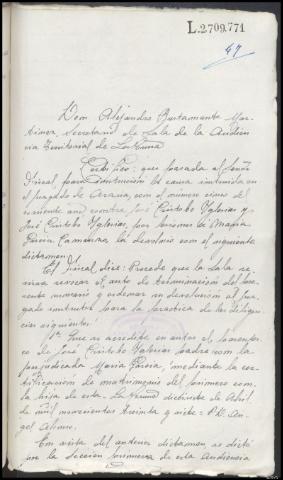 L.2709.771
47
Don Alejandro Bustamante Mar-
tinez, Secretario de Sala de la Audien
cia Territorial de La Coruña
Certifico: que pasada al Señor
Fiscal, para instrucción la causa instruida en
el juzgado de Arzua, con el numero cinco del
corriente año contra José Cristobo Iglesias y
José Cristobo Iglesias, por lesiones a Maria
Garcia la devolvio con el siguiente
dictamen
El Fiscal dice: Procede que la Sala se
sirva revocar el auto de terminacion del pre
sente sumario y ordenar su devolucion al juz
gado instructor para la practica de las diligen
cias siguientes:
1ª Que se acredite en autos el parentes
co de José Cristobo Iglesias padre con la
perjudicada Maria Garcia, mediante la cer
tificacion de matrimonio del primero con
la hija de esta. La Coruña diecisiete de Abril
de mil novecientos treinta y siete. P.D. An
gel
En vista del anterior dictamen, se dictó
por la Seccion primera de esta Audiencia